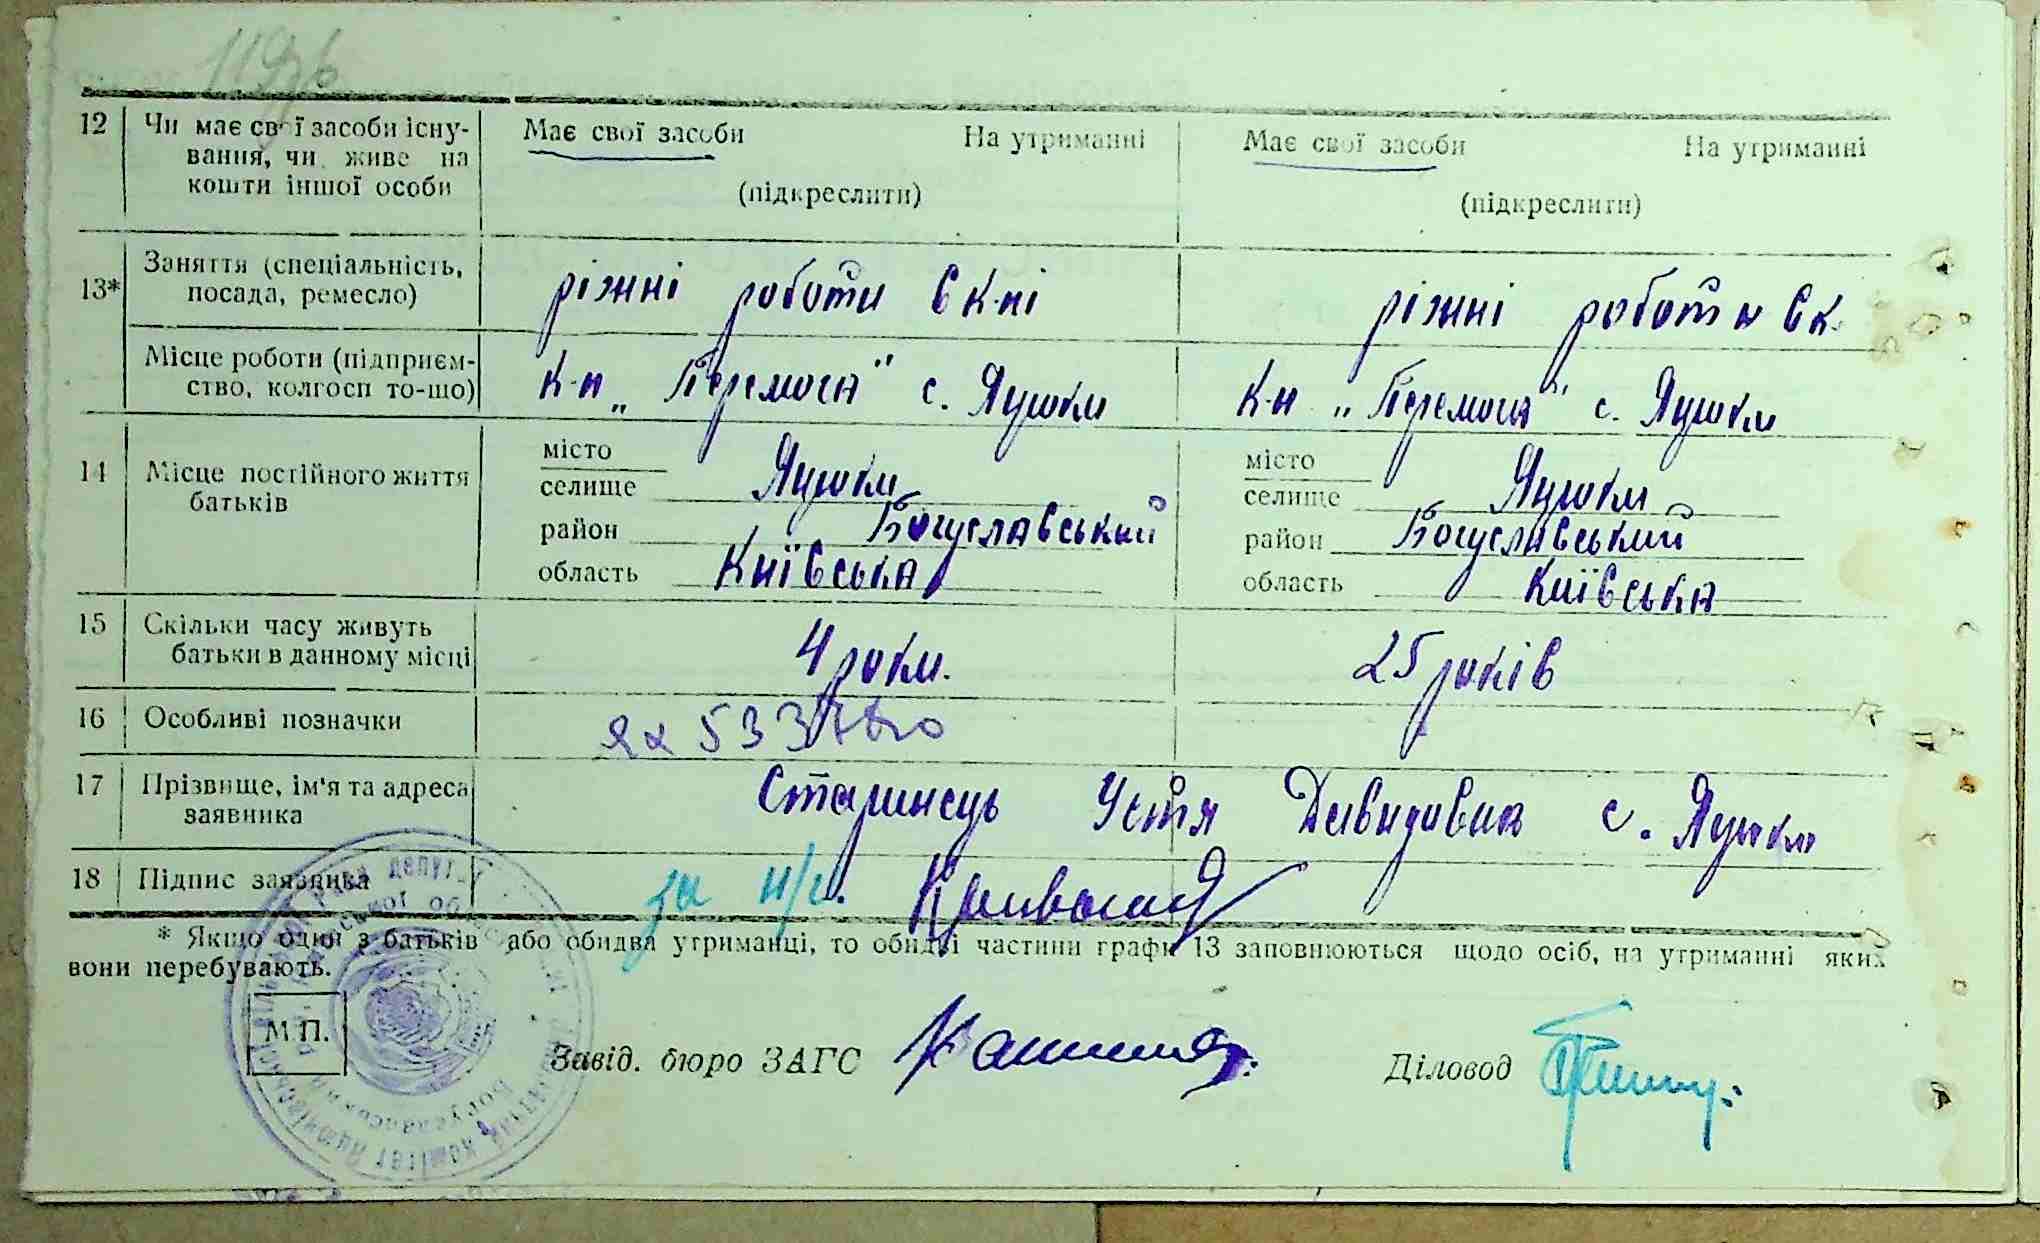 1196
12 Чи має свої засоби існу- Має свої засоби На утриманні Має свої засоби На утриманні
вання, чи живе на
кошти іншої особи (підкреслити) (підкреслити)
13* Заняття (спеціальність, ріжні роботи в к-пі ріжні роботи в к.
посада, ремесло)
Місце роботи (підприєм- К-п „Перемога" с. Яцюки К-п „Перемога" с. Яцюки
ство, колгосп то-що)
14 Місце постійного життя місто місто
батьків селище Яцюки селище Яцюки
район Богуславський район Богуславський
область Київська область Київська
15 Скільки часу живуть 4 роки. 25 років
батьки в данному місці
16 Особливі позначки
17 Прізвище, ім'я та адреса Старинець Устя Давидівна с. Яцюки
заявника
18 Підпис заявника за н/г.
* Якщо один з батьків або обидва утриманці, то обидві частини графи 13 заповнюються щодо осіб, на утриманні яких
вони перебувають.
М.П.
Завід. бюро ЗАГС Діловод